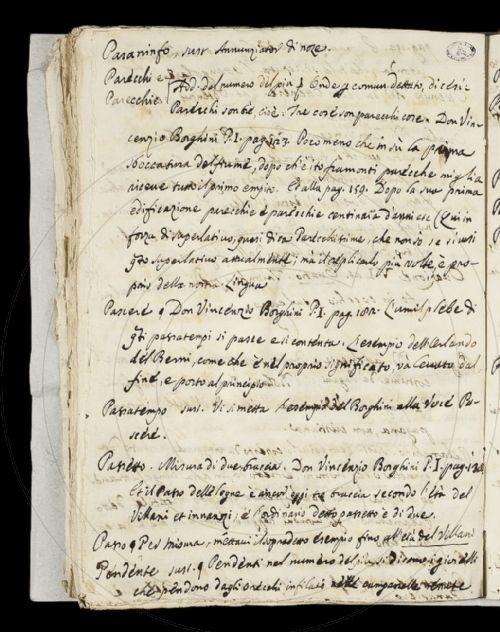 Paraninfo, sust. Annunziator di noze.
Parecchi e
Parecchie. Add. del numero del più. Onde p comun dettato, dicesi:
Parecchi son tre, cioè. Tre cose son parecchi cose. Don Vin-
cenzio Borghini P.I. pag. 123. Poco meno che in su la prima
sboccatura del fiume, dopo ch'è ito fra monti parecchie miglia
riceve tutto il primo empito. Et alla pag. 159. Dopo la sua prima
edificazione parecchie e parecchie centinaia d'anni etc. (Qui in
forza di superlativo, quasi dica Parecchissime, che non so se si usi
superlativo attualmente; ma il replicarlo più volte, è pro-
prio della nostra Lingua
Pascere q Don Vincenzio Borghini P.I. pag. L'umil plebe di
passatempi si pasce e si contenta. L'esempio dell'Orlando
del Berni, come che è nel proprio significato, va levato dal
fine, e posto al principio.
Passatempo sust. Vi si metta l'esempio del Borghini alla Voce Pa-
scere.
Passetto. Misura di due braccia. Don Vincenzio Borghini P.I. pag.
Et il Passo delle legne è ancor oggi tre braccia secondo l'età del
Villani et innanzi, e l'ordinario detto passetto è di due.
Passo q Per misura, mettaci il sopradetto esempio fino all'età del Villani
Pendente sust. q Pendenti nel numero del più si dicono i gioielli
che pendono dagli orecchi infilati nelle campanelle